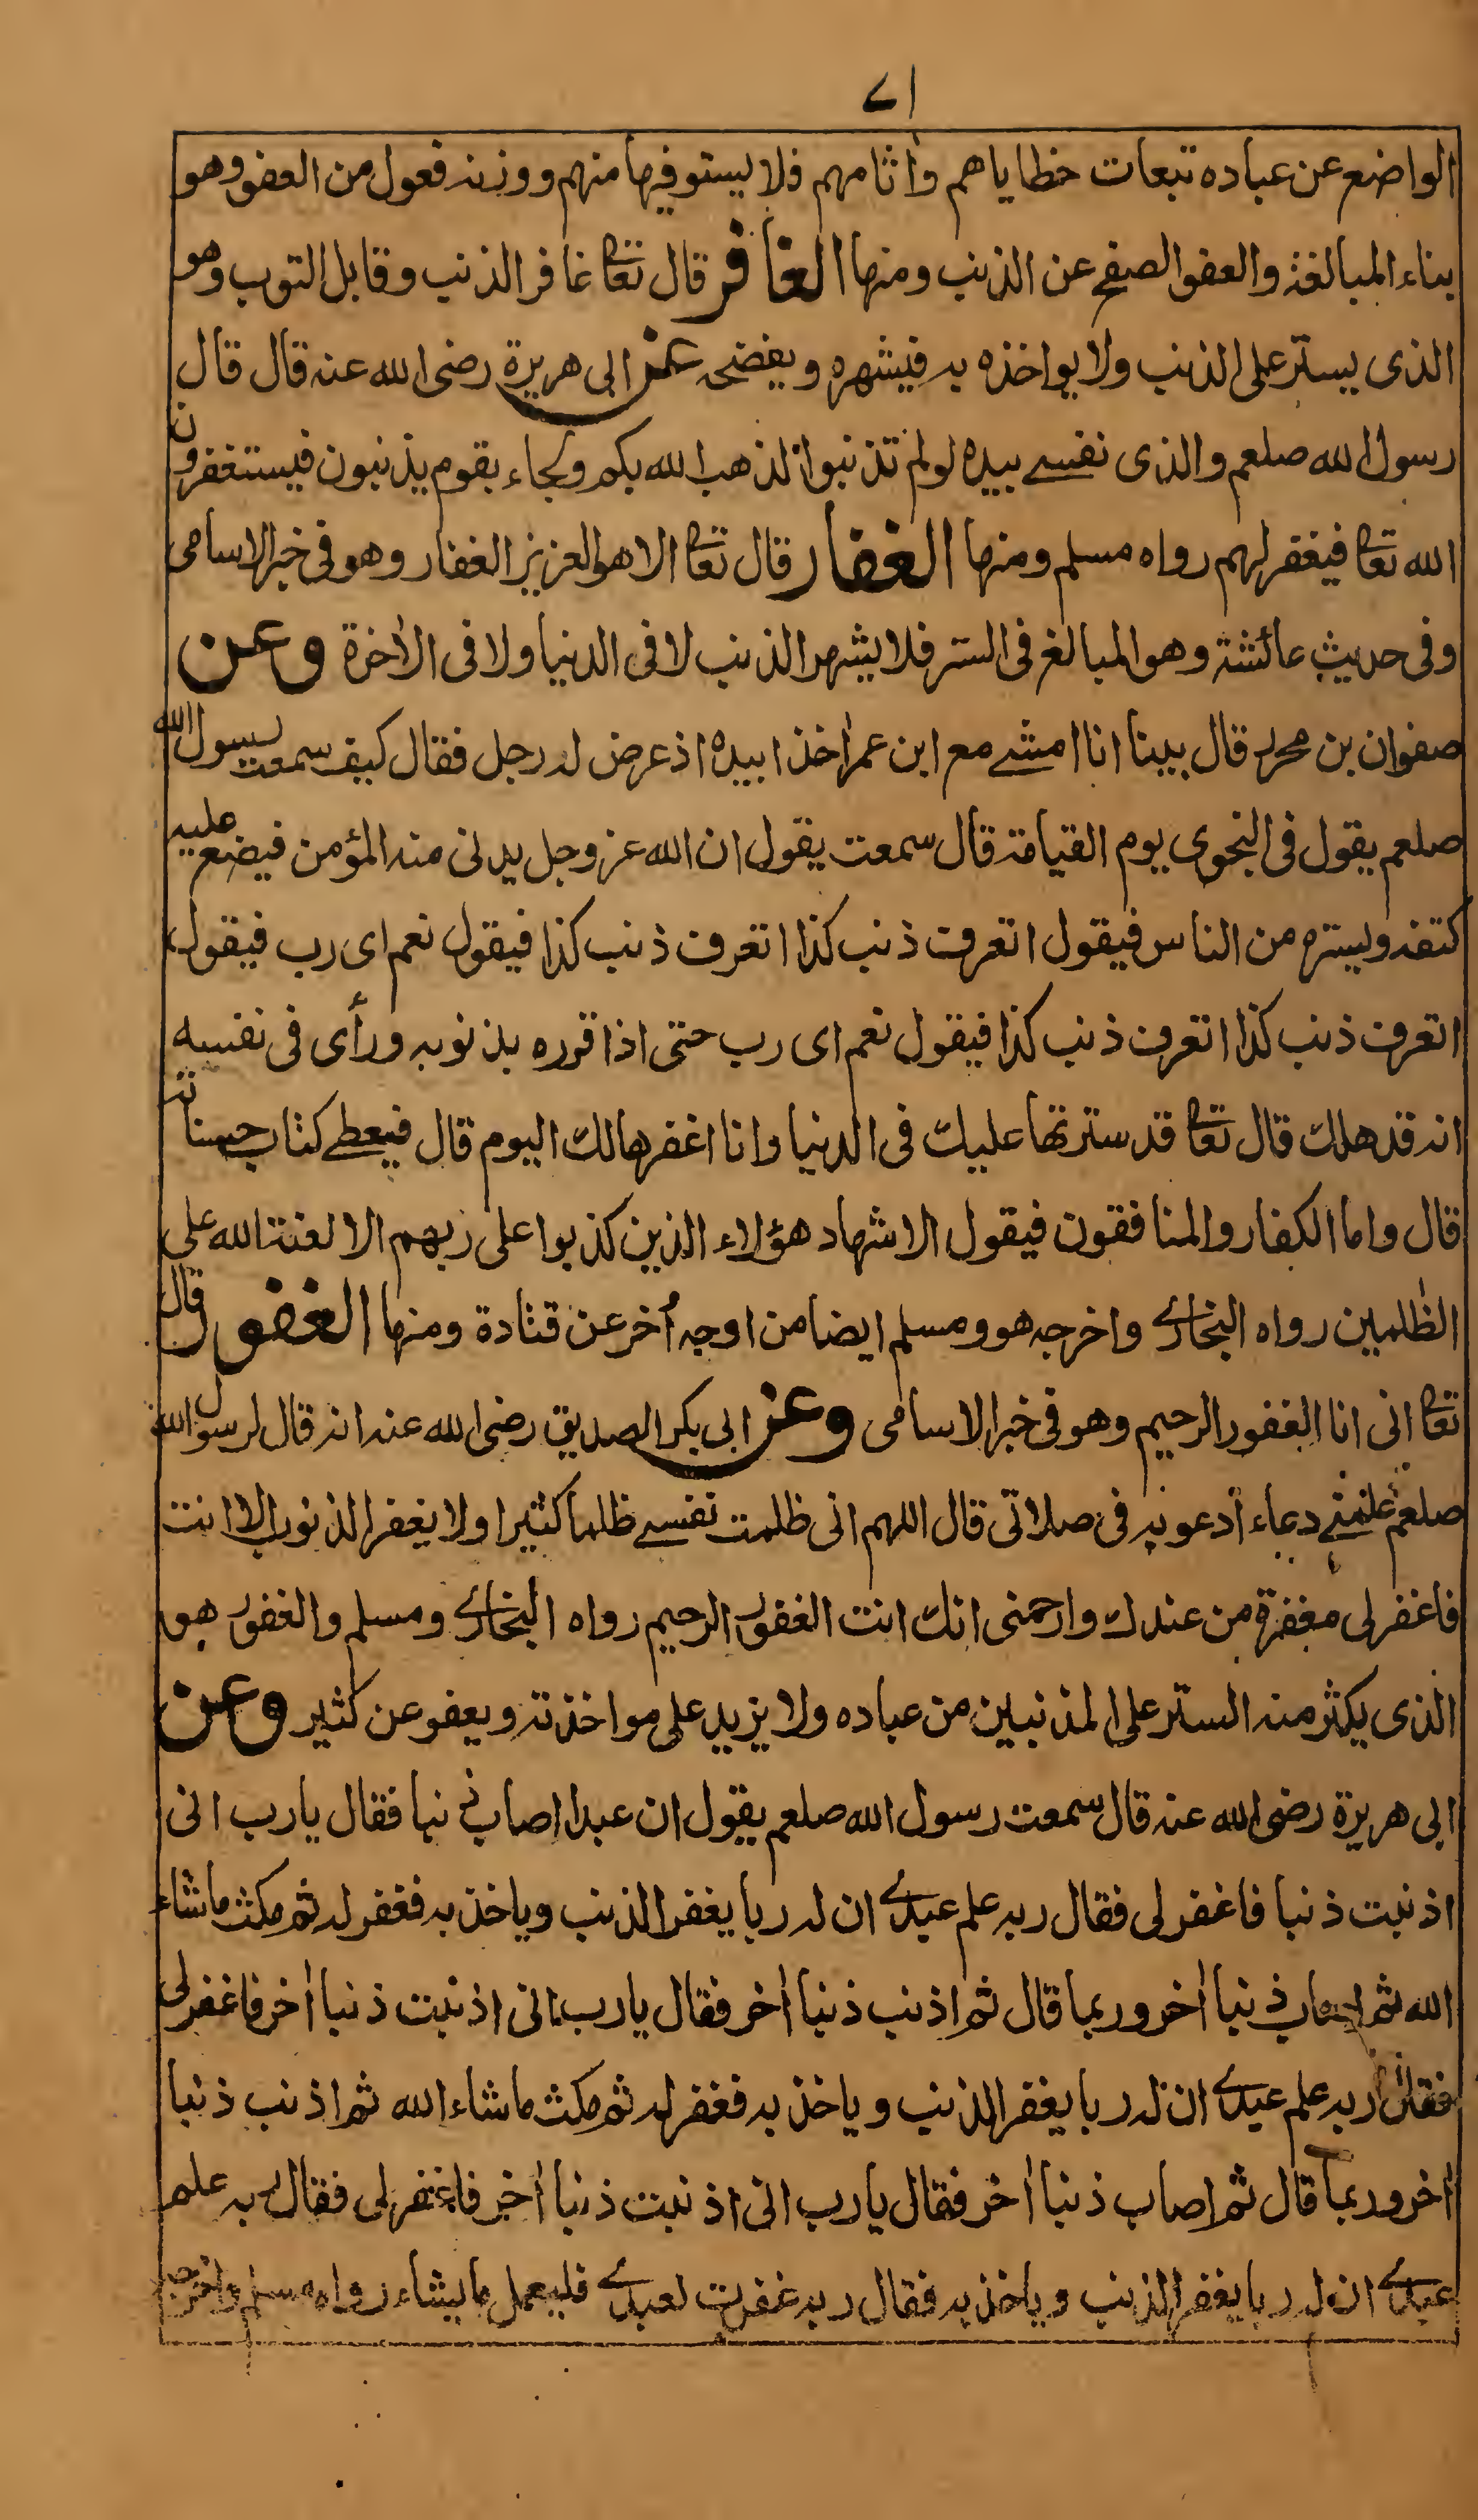 ٧١
الواضع عن عباده تبعات خطاياهم وآثامهم فلا يستوفيها منهم ووزنه فعول من العفو وهو
بناء المبالغة والعفو الصفح عن الذنب ومنها الغافر قال تعا غافر الذنب وقابل التوب وهو
الذى يستر على الذنب ولا يواخذه به فيشهره ويفضحه عن ابى هريرة رضى الله عنه قال قال
رسول الله صلعم والذى نفسے بيده لو لم تذنبوا لذهب الله بكم ولجاء بقوم يذنبون فيستغفرون
الله تعا فيغفر لهم رواه مسلم ومنها الغفار قال تعا الا هو العزيز الغفار وهو فى خبر الاسامى
وفى حديث عائشة وهو المبالغ فى الستر فلا يشهر الذنب لا فى الدنيا ولا فى الاٰخرة وعن
صفوان بن محرز قال بينا انا امشے مع ابن عمر اٰخذا بيده اذ عرض له رجل فقال كيف سمعت رسول الله
صلعم يقول فى النجوى يوم القيامة قال سمعت يقول ان الله عز وجل يدنى منه المؤمن فيضع عليه
كتفه ويستره من الناس فيقول اتعرف ذنب كذا اتعرف ذنب كذا فيقول نعم اى رب فيقول
اتعرف ذنب كذا اتعرف ذنب كذا فيقول نعم اى رب حتى اذا قرره بذنوبه ورأى فى نفسه
انه قد هلك قال تعا قد سترتها عليك فى الدنيا وانا اغفرها لك اليوم قال فيعطے كتاب حسناته
قال واما الكفار والمنافقون فيقول الاشهاد هؤلاء الذين كذبوا على ربهم الا لعنة الله على
الظٰلمين رواه البخارے واخرجه هو ومسلم ايضا من اوجه اُخر عن قتادة ومنها الغفور قال
تعا انى انا الغفور الرحيم وهو فى خبر الاسامى وعن ابى بكر الصديق رضى الله عنه انه قال لرسول الله
صلعم علمنے دعاء أدعو به فى صلاتى قال اللهم انى ظلمت نفسے ظلما كثيرا ولا يغفر الذنوب الا انت
فاغفر لى مغفرة من عندك وارحمنى انك انت الغفور الرحيم رواه البخارے ومسلم والغفور هو
الذى يكثر منه الستر على المذنبين من عباده ولا يزيد على مواخذته ويعفو عن كثير وعن
ابى هريرة رضى الله عنه قال سمعت رسول الله صلعم يقول ان عبدا اصاب ذنبا فقال يا رب انى
اذنبت ذنبا فاغفر لى فقال ربه علم عبدے ان له ربا يغفر الذنب وياخذ به فغفر له ثم مكث ما شاء
الله ثم اصاب ذنبا اٰخر وربما قال ثم اذنب ذنبا اٰخر فقال يا رب انى اذنبت ذنبا اٰخر فاغفر لى
فقال ربه علم عبدے ان له ربا يغفر الذنب وياخذ به فغفر له ثم مكث ما شاء الله ثم اذنب ذنبا
اٰخر وربما قال ثم اصاب ذنبا اٰخر فقال يا رب انى اذنبت ذنبا اٰخر فاغفر لى فقال ربه علم
عبدے ان له ربا يغفر الذنب وياخذ به فقال ربه غفرت لعبدے فليعمل ما يشاء رواه مسلم